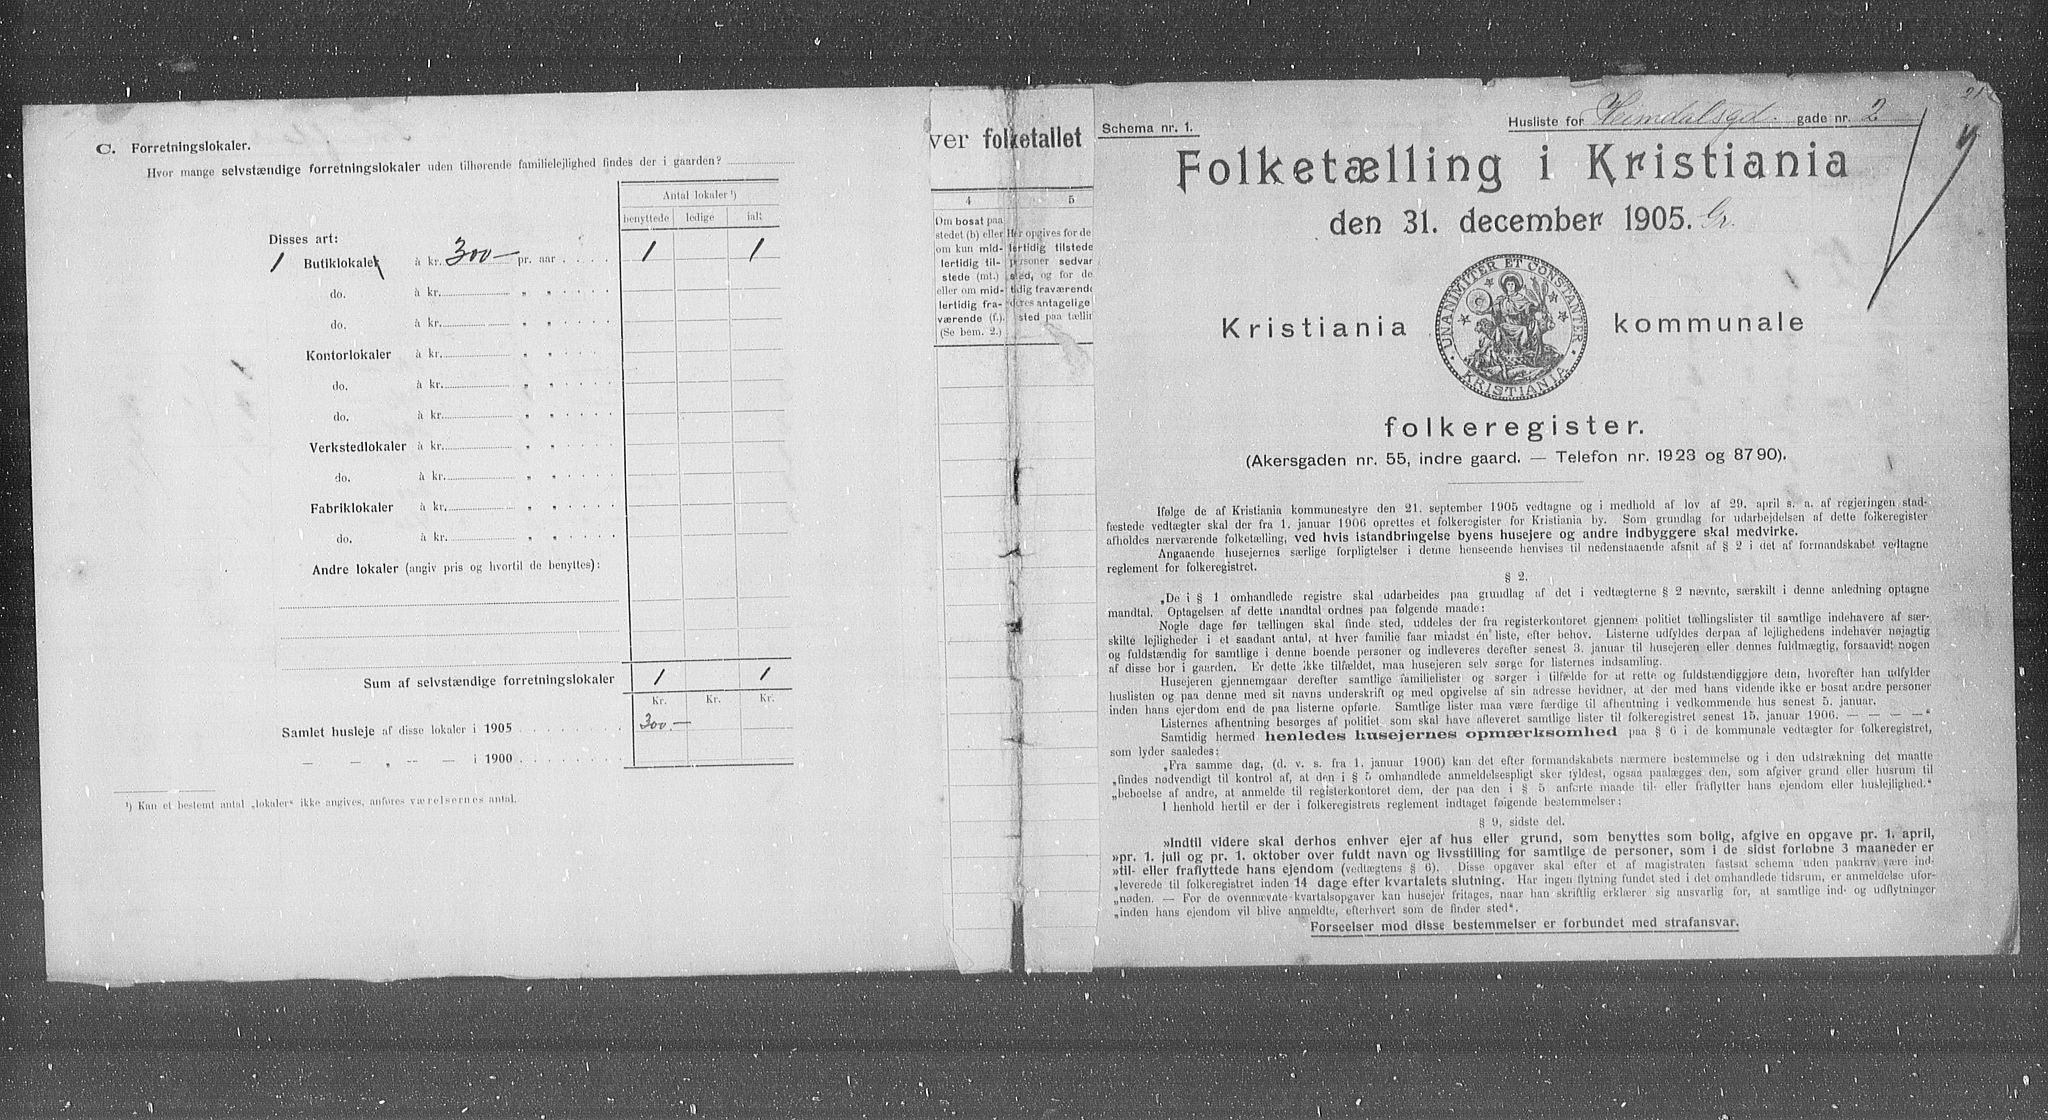 C. Forretningslokaler.
Hvor mange selvstændige forretningslokaler uden tilhørende familielejlighed findes der i gaarden?
Antal lokaler ¹)
benyttede ledige ialt
Disses art:
1 Butiklokaler à kr. 300 — pr. aar 1 1
do. à kr. „ „
do. à kr. „ „
Kontorlokaler à kr. „ „
do. à kr. „ „
do. à kr. „ „
Verkstedlokaler à kr. „ „
do. à kr. „ „
Fabriklokaler à kr. „ „
do. à kr. „ „
Andre lokaler (angiv pris og hvortil de benyttes):
Sum af selvstændige forretningslokaler 1 1
Kr. Kr. Kr.
Samlet husleje af disse lokaler i 1905 300.—
— — „ — — i 1900
¹) Kan et bestemt antal „lokaler“ ikke angives, anføres værelsernes antal.
ver folketallet
4 5
Om bosat paa
stedet (b) eller
om kun mid-
lertidig til-
stede (mt.)
eller om mid-
lertidig fra-
værende (f.).
(Se bem. 2.)
Her opgives for de
lertidig tilstede
personer sedvar
sted, og for de
tidig fraværende
deres antagelige
sted paa tællin
Schema nr. 1.
Husliste for Heimdalsgd. gade nr. 2
21
Folketælling i Kristiania
den 31. december 1905. Gr.
Kristiania kommunale
UNANIMITER ET CONSTANTER
KRISTIANIA
folkeregister.
(Akersgaden nr. 55, indre gaard. — Telefon nr. 1923 og 8790).
Ifølge de af Kristiania kommunestyre den 21. september 1905 vedtagne og i medhold af lov af 29. april s. a. af regjeringen stad-
fæstede vedtægter skal der fra 1. januar 1906 oprettes et folkeregister for Kristiania by. Som grundlag for udarbejdelsen af dette folkeregister
afholdes nærværende folketælling, ved hvis istandbringelse byens husejere og andre indbyggere skal medvirke.
Angaaende husejernes særlige forpligtelser i denne henseende henvises til nedenstaaende afsnit af § 2 i det af formandskabet vedtagne
reglement for folkeregistret.
§ 2.
„De i § 1 omhandlede registre skal udarbeides paa grundlag af det i vedtægterne § 2 nævnte, særskilt i denne anledning optagne
mandtal. Optagelsen af dette mandtal ordnes paa følgende maade:
Nogle dage før tællingen skal finde sted, uddeles der fra registerkontoret gjennem politiet tællingslister til samtlige indehavere af sær-
skilte lejligheder i et saadant antal, at hver familie faar mindst én liste, efter behov. Listerne udfyldes derpaa af lejlighedens indehaver nøjagtig
og fuldstændig for samtlige i denne boende personer og indleveres derefter senest 3. januar til husejeren eller dennes fuldmægtig, forsaavidt nogen
af disse bor i gaarden. Er dette ikke tilfældet, maa husejeren selv sørge for listernes indsamling.
Husejeren gjennemgaar derefter samtlige familielister og sørger i tilfælde for at rette og fuldstændiggjøre dem, hvorefter han udfylder
huslisten og paa denne med sit navns underskrift og med opgivelse af sin adresse bevidner, at der med hans vidende ikke er bosat andre personer
inden hans ejendom end de paa listerne opførte. Samtlige lister maa være færdige til afhentning i vedkommende hus senest 5. januar.
Listernes afhentning besørges af politiet, som skal have afleveret samtlige lister til folkeregistret senest 15. januar 1906. — — — —“
Samtidig hermed henledes husejernes opmærksomhed paa § 6 i de kommunale vedtægter for folkeregistret,
som lyder saaledes:
„Fra samme dag, (d. v. s. fra 1. januar 1906) kan det efter formandskabets nærmere bestemmelse og i den udstrækning det maatte
„findes nødvendigt til kontrol af, at den i § 5 omhandlede anmeldelsespligt sker fyldest, ogsaa paalægges den, som afgiver grund eller husrum til
„beboelse af andre, at anmelde til registerkontoret dem, der paa den i § 5 anførte maade til- eller fraflytter hans ejendom eller huslejlighed.“
I henhold hertil er der i folkeregistrets reglement indtaget følgende bestemmelser:
§ 9, sidste del.
»Indtil videre skal derhos enhver ejer af hus eller grund, som benyttes som bolig, afgive en opgave pr. 1. april,
»pr. 1. juli og pr. 1. oktober over fuldt navn og livsstilling for samtlige de personer, som i de sidst forløbne 3 maaneder er
»til- eller fraflyttede hans ejendom (vedtægtens § 6). Disse opgaver skal efter et af magistraten fastsat schema uden paakrav være ind-
„leverede til folkeregistret inden 14 dage efter kvartalets slutning. Har ingen flytning fundet sted i det omhandlede tidsrum, er anmeldelse ufor-
„nøden. — For de ovennævnte kvartalsopgaver kan husejer fritages, naar han skriftlig erklærer sig ansvarlig for, at samtlige ind- og udflytninger
„inden hans ejendom vil blive anmeldte, efterhvert som de finder sted“.
Forseelser mod disse bestemmelser er forbundet med strafansvar.